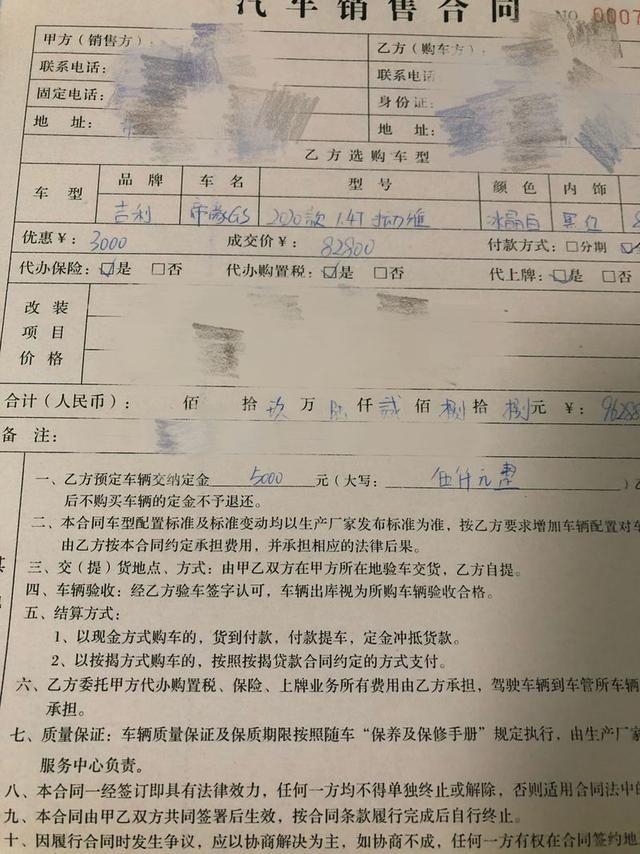 汽车销售合同 NO 0007
甲方（销售方）： 乙方（购车方）：
联系电话： 联系电话
固定电话： 身份证：
地 址： 地 址：
乙方选购车型
车 型 品 牌 车 名 型 号 颜 色 内 饰
吉利 帝豪GS 2020款 1.4T 动力雅 冰晶白 黑红
优惠￥： 3000 成交价￥： 82800 付款方式：□分期
代办保险：☑是 □否 代办购置税：☑是 □否 代上牌：☑是 □否
改 装
项 目
价 格
合计（人民币）： 佰 拾 玖 万 陆 仟 贰 佰 捌 拾 捌 元 ￥： 96288
备 注：
一、乙方预定车辆交纳定金 5000 元（大写： 伍仟元整 ）乙
后不购买车辆的定金不予退还。
二、本合同车型配置标准及标准变动均以生产厂家发布标准为准，按乙方要求增加车辆配置对车
由乙方按本合同约定承担费用，并承担相应的法律后果。
其
三、交（提）货地点、方式：由甲乙双方在甲方所在地验车交货，乙方自提。
四、车辆验收：经乙方验车签字认可，车辆出库视为所购车辆验收合格。
五、结算方式：
1、以现金方式购车的，货到付款，付款提车，定金冲抵货款。
2、以按揭方式购车的，按照按揭贷款合同约定的方式支付。
六、乙方委托甲方代办购置税、保险、上牌业务所有费用由乙方承担，驾驶车辆到车管所车辆
承担。
七、质量保证：车辆质量保证及保质期限按照随车“保养及保修手册”规定执行，由生产厂家
服务中心负责。
八、本合同一经签订即具有法律效力，任何一方均不得单独终止或解除，否则适用合同法中的
九、本合同由甲乙双方共同签署后生效，按合同条款履行完成后自行终止。
十、因履行合同时发生争议，应以协商解决为主，如协商不成，任何一方有权在合同签约地